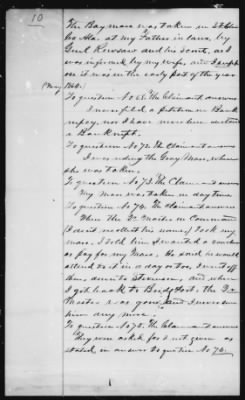 10
The Bay mare was taken in St Clair
Co Ala. at my Father in laws, by
Genl Rowsaw and his scouts, as I
was informed by my wife, and I suppose
in it was in the early part of the year
1864.
To question No 68. The Claimant answers
I never filed a petition in Bank
rupcy, nor I have never been declared
a Bankrupt.
To question No 72. The Claimant answers
I was riding the Gray Mare, when
she was taken.
To question No 73. The Claimant answers
My mare was taken in day time
To question No 74. The Claimant answers
When the Qr Master in Command
(I do not recollect his name) took my
mare. I told him I wanted a voucher
as pay for my Mare. He said he would
attend to it in a day or two, I went off
then, down to Stevenson, and when
I got back to Bridgeport, the Qr
Master was gone, and I never saw
him any more.
To question No 75. The Claimant answers
They were asked for & not given as
stated in answer to question No 74.